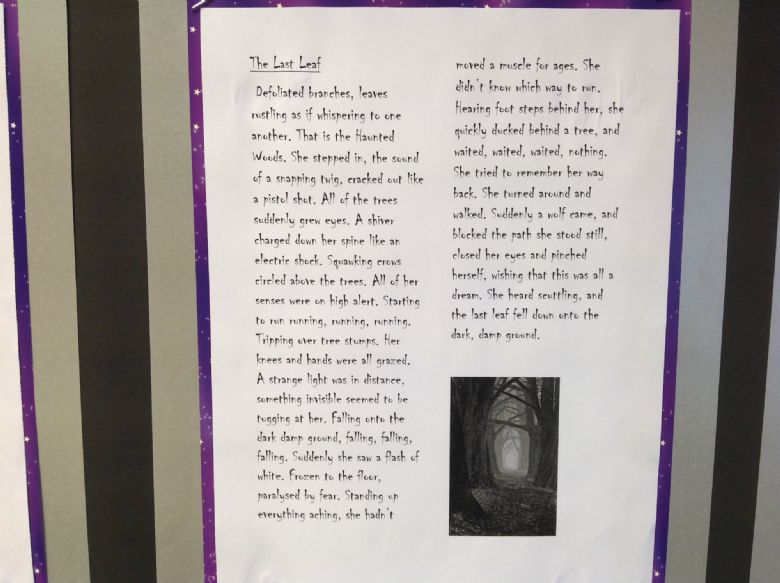 The Last Leaf
Defoliated branches, leaves
rustling as if whispering to one
another. That is the Haunted
Woods. She stepped in, the sound
of a snapping twig, cracked out like
a pistol shot. All of the trees
suddenly grew eyes. A shiver
charged down her spine like an
electric shock. Squawking crows
circled above the trees. All of her
senses were on high alert. Starting
to run running, running, running.
Tripping over tree stumps. Her
knees and hands were all grazed.
A strange light was in distance,
something invisible seemed to be
tugging at her. Falling onto the
dark damp ground, falling, falling,
falling. Suddenly she saw a flash of
white. Frozen to the floor,
paralysed by fear. Standing up
everything aching, she hadn't
moved a muscle for ages. She
didn't know which way to run.
Hearing foot steps behind her, she
quickly ducked behind a tree, and
waited, waited, waited, nothing.
She tried to remember her way
back. She turned around and
walked. Suddenly a wolf came, and
blocked the path she stood still,
closed her eyes and pinched
herself, wishing that this was all a
dream. She heard scuttling, and
the last leaf fell down onto the
dark, damp ground.